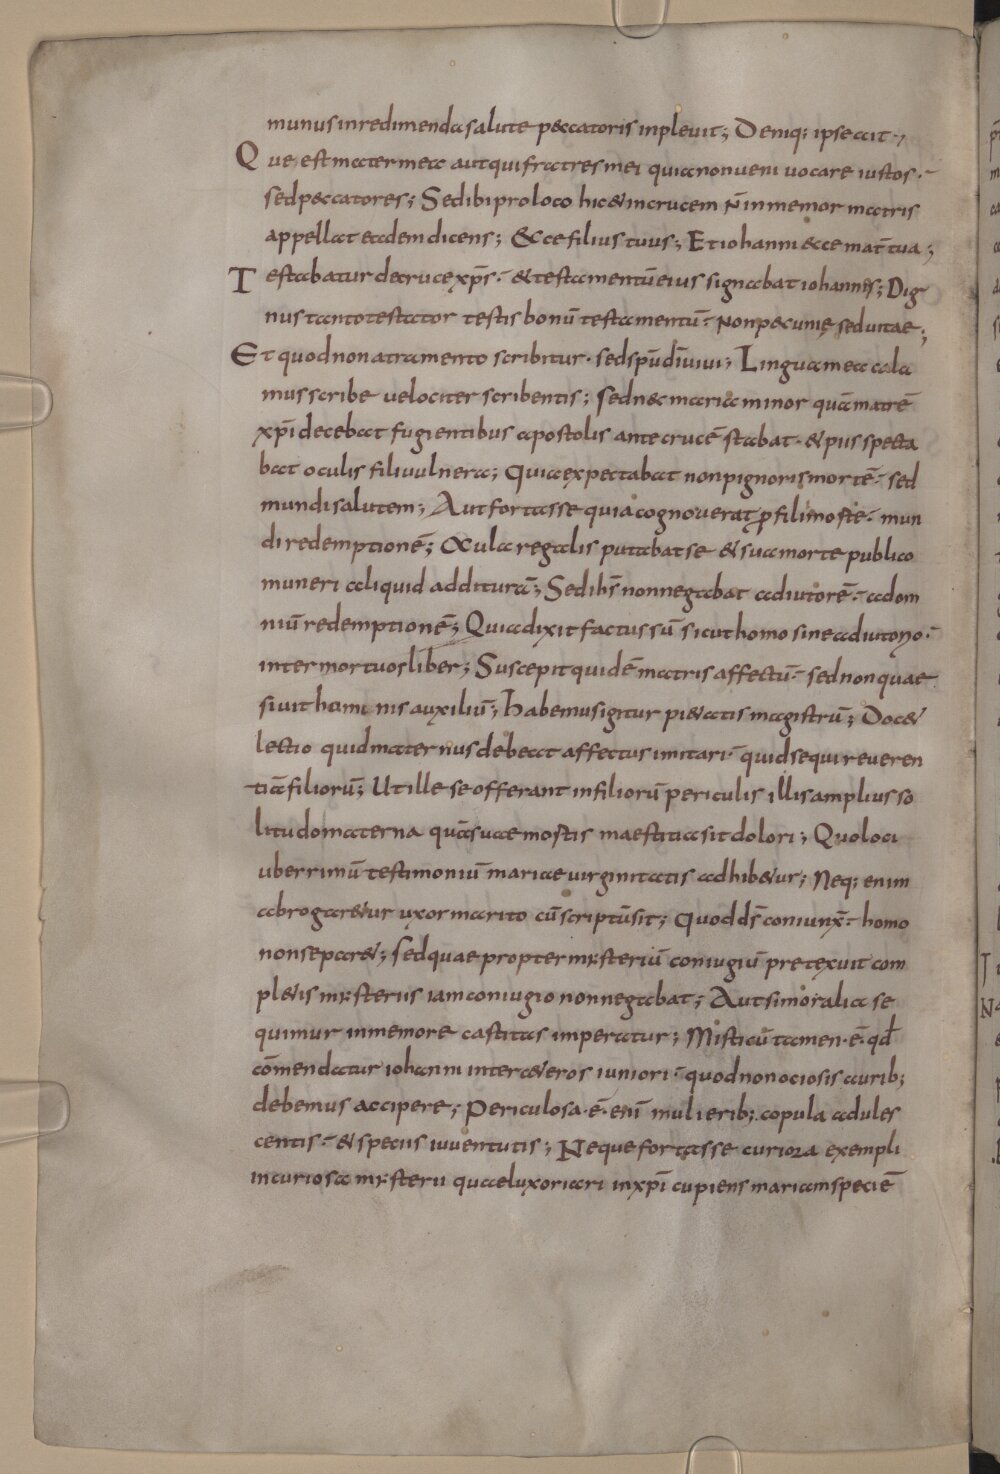 munus inredimenda salute peccatoris inplevit; Deniq; ipse ait·,
Que est mater mea aut qui fratres mei quia non veni vocare iustos·
sed peccatores; Sed ibi pro loco hic & in crucem ñ inmemor matris
appellat eadem dicens; Ecce filius tuus; Et iohanni ecce mat̄ tua;
Testabatur de cruce xp̄s· & testamentū eius signabat iohannis; Dig
nus tanto testator testis bonū testamentū· non pecunię sed uitae;
Et quod non atramento scribitur· sed sp̄u dī uiui; Lingua mea cala
mus scribe velociter scribentis; sed nec maria minor quā matrē
xp̄i decebat fugientibus apostolis ante crucē stabat· & piis specta
bat oculis filii vulnera; quia expectabat non pignoris mortē· sed
mundi salutem; Aut fortasse quia cognoverat ꝑ filii mortē· mun
di redemptionē; & aula regalis putabat se & sua morte publico
muneri aliquid additurā; Sed ih̄s non negabat adiutorē· ad om
niū redemptionē; Quia dixit factus sū sicut homo sine adiutorio·
inter mortuos liber; Suscepit quidē matris affectū· sed non quae
sivit hominis auxiliū; habemus igitur pi&atis magistrū; Doc&
lectio quid maternus debeat affectus imitari· quid sequi reveren
tiā filiorū; Ut ille se offerant in filiorū periculis illis amplius so
litudo materna quā suae mostis maestitia sit dolori; Quo loci
uberrimū testimoniū mariae virginitatis adhib&ur; Neq; enim
abrogar&ur uxor marito cū scriptū sit; quod ds̄ coniunx̄· homo
non separ&; sed quae propter mysteriū coniugiū pretexuit com
pl&is mysteriis iam coniugio non negabat; Aut si moralia se
quimur inmemore castitas imperatur; Misticū tamen·ē· qd̄
cōmendatur iohanni inter c&eros iuniori· quod non ociosis aurib;
debemus accipere; Periculosa·ē· enī mulierib; copula adules
centis· & speciis iuventutis; Neque fortasse curiora exempli
incuriosa mysterii quae luxoriari in xp̄i cupiens mariam speciē